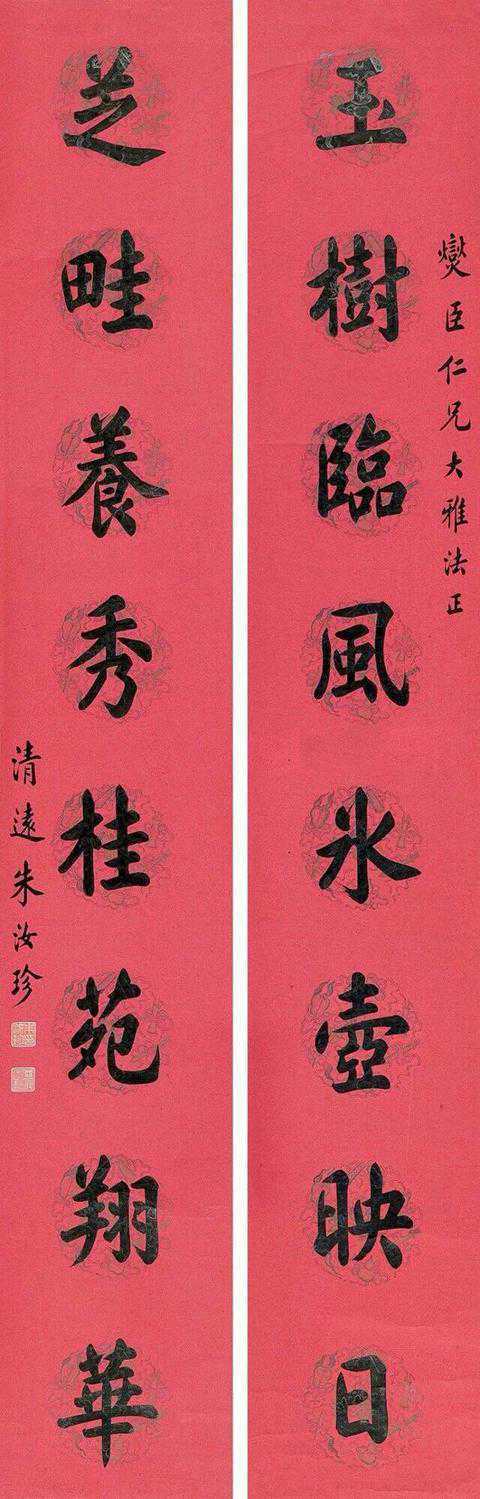 燮臣仁兄大雅法正
玉樹臨風冰壺映日
芝畦養秀桂苑翔華
清遠朱汝珍